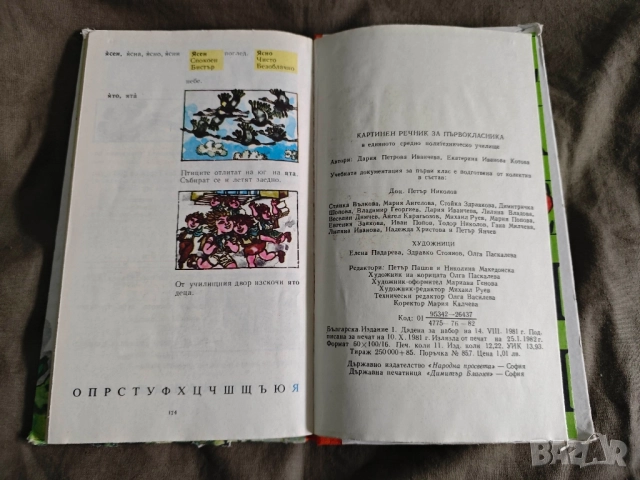 я̀сен, я̀сна, я̀сно, я̀сни
Ясен поглед.
Спокоен
Бистър
Ясно
Чисто
Безоблачно
небе.
я̀то, ята̀
Птиците отлитат на юг на ята.
Събират се и летят заедно.
От училищния двор изскочи ято
деца.
О П Р С Т У Ф Х Ц Ч Ш Щ Ъ Ь Ю Я
124
КАРТИНЕН РЕЧНИК ЗА ПЪРВОКЛАСНИКА
в единното средно политехническо училище
Автори: Дария Петрова Иванчева, Екатерина Иванова Котова
Учебната документация за първи клас е подготвена от колектив
в състав:
Доц. Петър Николов
Стойка Здравкова, Димитричка
Владимир Георгиев, Дария Иванчева, Лиляна Владова,
Веселин Дончев, Ангел Карагьозов, Михаил Руев, Мария Попова,
Евгения Заякова, Иван Попов, Тодор Николов, Ганa Милчева,
Лиляна Иванова, Надежда Христова и Петър Янчев
ХУДОЖНИЦИ
Елена Пъдарева, Здравко Стоянов, Олга Паскалева
Редактори: Петър Пашов и Николина Македонска
Художник на корицата Олга Паскалева
Художник-оформител Мариана Генова
Художник-редактор Михаил Руев
Технически редактор Олга Василева
Коректор Мария Калчева
Код: 01 95342—26437
4775—76—82
Българска Издание 1. Дадена за набор на 14. VIII. 1981 г. Под-
писана за печат на 10. X. 1981 г. Излязла от печат на 25. I. 1982 г.
Формат 60×100/16 Печ. коли 11. Изд. коли 12,22. УИК 13,93.
Тираж 250 000+85. Поръчка № 857. Цена 1,01 лв.
Държавно издателство «Народна просвета» — София
Държавна печатница «Димитър Благоев» — София
BAZAR